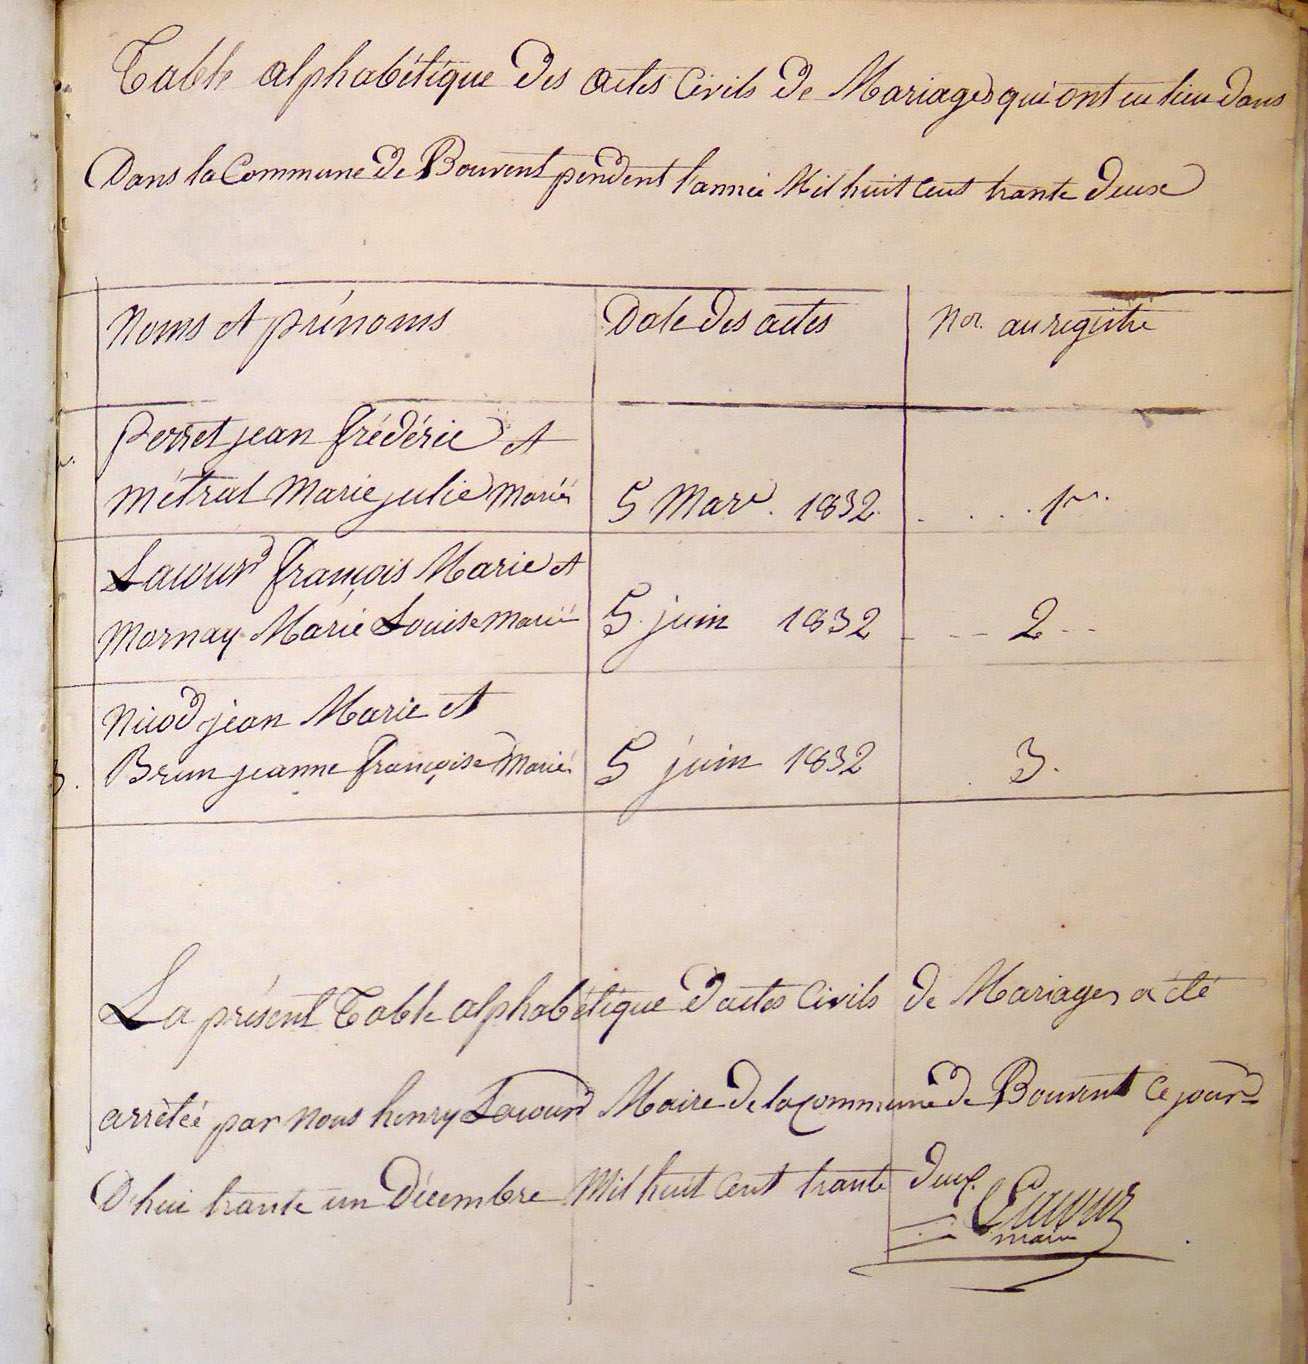 Table alphabétique des actes Civils de Mariages qui ont eu lieu dans
Dans la Commune de Bouvent pendent l'année Mil huit cent trante deux
Noms et prénoms Date des actes Nos. au registre
Perret jean frédéric et
métral Marie julie Mariés 5 Mars. 1832 . . . . 1er.
Lacour françois Marie et
Mornay Marie Louise marié 5 juin 1832 - - - 2 - -
Nicod jean Marie et
3. Brun jeanne françoise Marié 5 juin 1832 . 3.
La présent Table alphabétique d'actes Civils de Mariages a été
arrêteé par nous henry Lacour Maire de la commune de Bouvent Ce jour=
D'hui trante un Décembre Mil huit Cent trante deux.
Lacour
maire